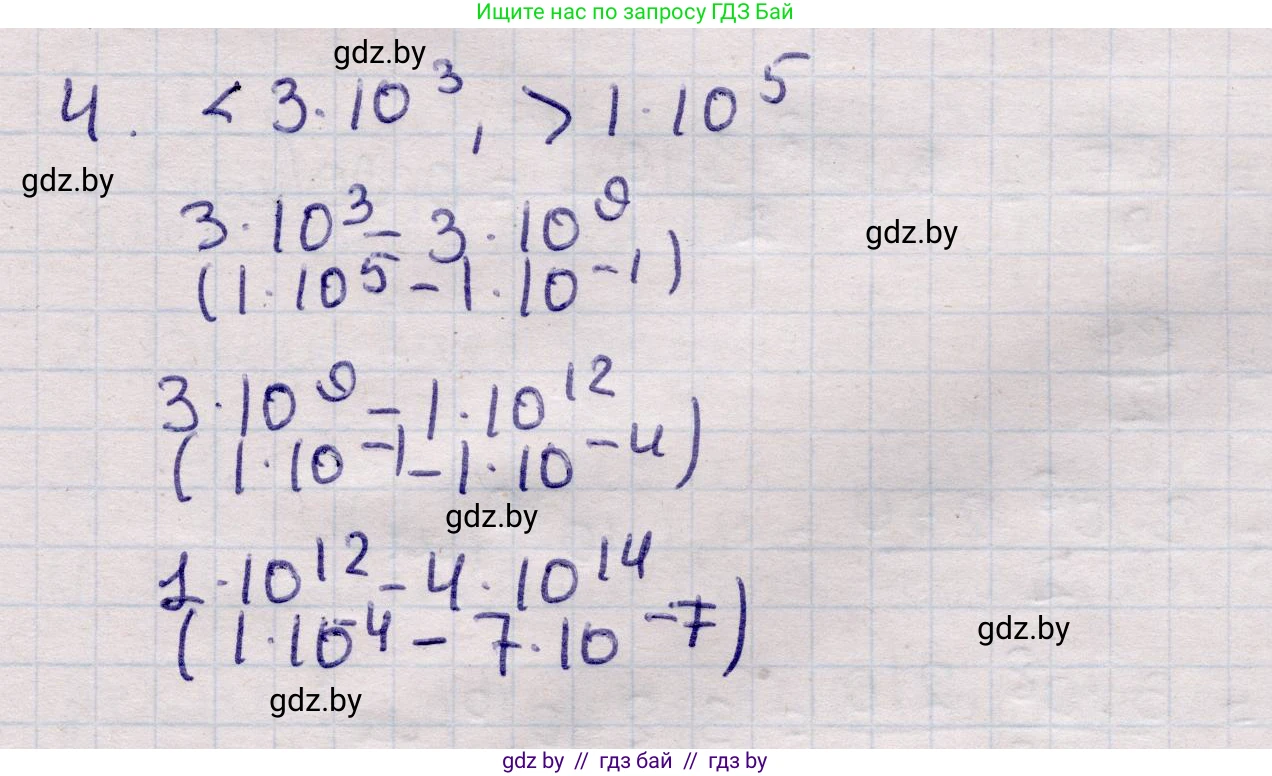 Ищите нас по запросу ГДЗ Бай
gdz.by
4. < 3·10³, > 1·10⁵
gdz.by
3·10³ – 3·10⁹
gdz.by
(1·10⁵ – 1·10⁻¹)
3·10⁹ – 1·10¹²
(1·10⁻¹ – 1·10⁻⁴)
gdz.by
1·10¹² – 4·10¹⁴
(1·10⁻⁴ – 7·10⁻⁷)
gdz.by
gdz.by
gdz by // гдз бай // гдз by